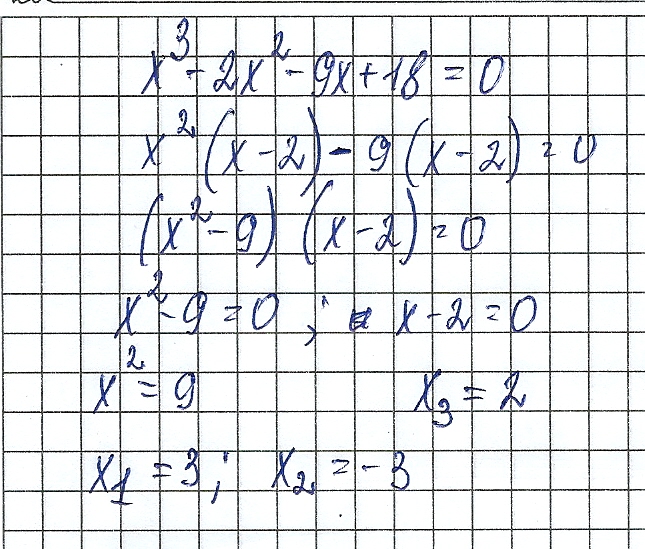 x³ - 2x² - 9x + 18 = 0
x² (x - 2) - 9 (x - 2) = 0
(x² - 9) (x - 2) = 0
x² - 9 = 0 ; x - 2 = 0
x² = 9 x₃ = 2
x₁ = 3 ; x₂ = -3